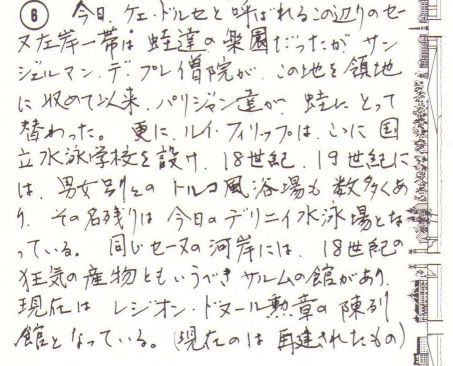 ⑥ 今日、ケ・ドルセと呼ばれるこの辺りのセー
ヌ左岸一帯は蛙達の楽園だったが、サン
ジェルマン・デ・プレ僧院が、この地を領地
に収めて以来、パリジャン達が、蛙にとって
替わった。 更に、ルイ・フィリップは、ここに国
立水泳学校を設け、18世紀、19世紀に
は、男女別々のトルコ風浴場も数多くあ
り、その名残りは今日のデリニイ水泳場とな
っている。 同じセーヌの河岸には、18世紀の
狂気の産物ともいうべきサルムの館があり、
現在は レジオン・ドヌール勲章の陳列
館となっている。(現在のは再建されたもの)